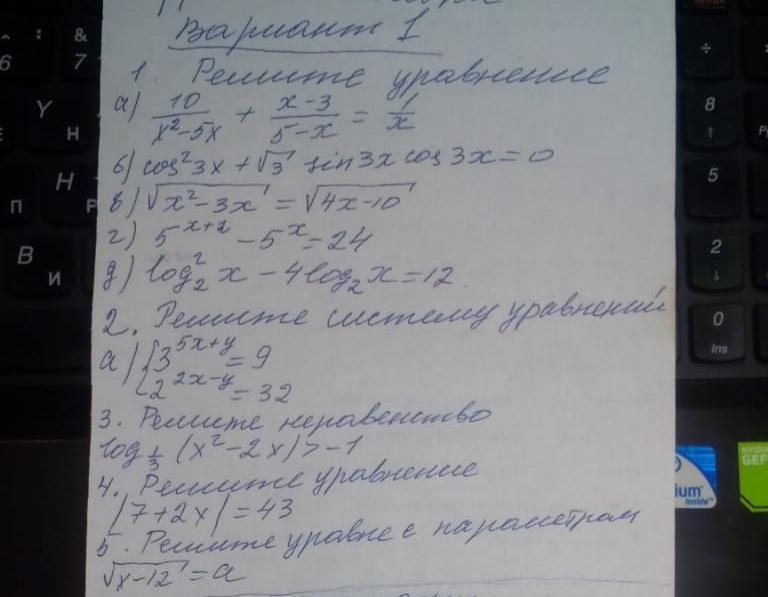 Вариант 1
1. Решите уравнение
а) 10/(x²-5x) + (x-3)/(5-x) = 1/x
б) cos²3x + √3 sin3x cos3x = 0
в) √(x²-3x) = √(4x-10)
г) 5^(x+2) - 5^x = 24
д) log₂²x - 4log₂x = 12
2. Решите систему уравнений
а) { 3^(5x+y) = 9
2^(2x-y) = 32
3. Решите неравенство
log_(1/3) (x²-2x) > -1
4. Решите уравнение
|7+2x| = 43
5. Решите уравне с параметрам
√(x-12) = a
&
6
7
Y
Н
Н
П
Р
В
И
÷
8
↑
5
2
↓
0
Ins
ium
inside
NVIDIA
GEF